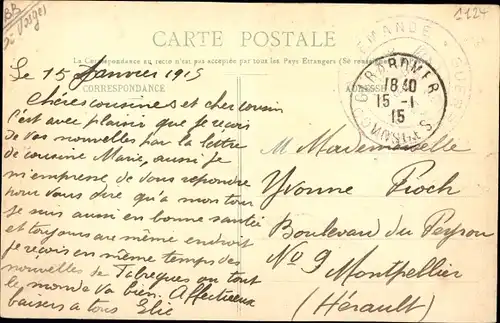 BB
Vosges
1124
CARTE POSTALE
La Correspondance au recto n'est pas acceptée par tous les Pays Étrangers (Se
CORRESPONDANCE
ADRESSE
GÉRARDMER
18 40
15 - 1
15
VOSGES
Le 15 Janvier 1915
Chères cousines et cher cousin
c'est avec plaisir que je reçois
de vos nouvelles par la lettre
de cousine Marie, aussi je
m'empresse de vous repondre
pour vous dire qu'a mon tour
je suis aussi en bonne santée
et toujours au même endroit
je reçois en même temps des
nouvelles de Fabregues ou tout
le monde va bien. Affectueux
baisers a tous Elie
M Mademoiselle
Yvonne Fioch
Boulevard du Peyrou
No 9
Montpellier
(Hérault)